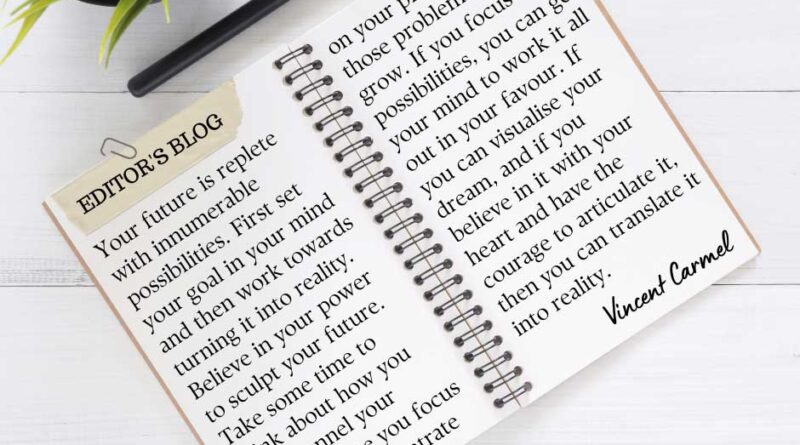 EDITOR'S BLOG
Your future is replete
with innumerable
possibilities. First set
your goal in your mind
and then work towards
turning it into reality.
Believe in your power
to sculpt your future.
Take some time to
about how you
your
you focus
on your
those
grow. If you focus
possibilities, you can
your mind to work it all
out in your favour. If
you can visualise your
dream, and if you
believe in it with your
heart and have the
courage to articulate it,
then you can translate it
into reality.
Vincent Carmel